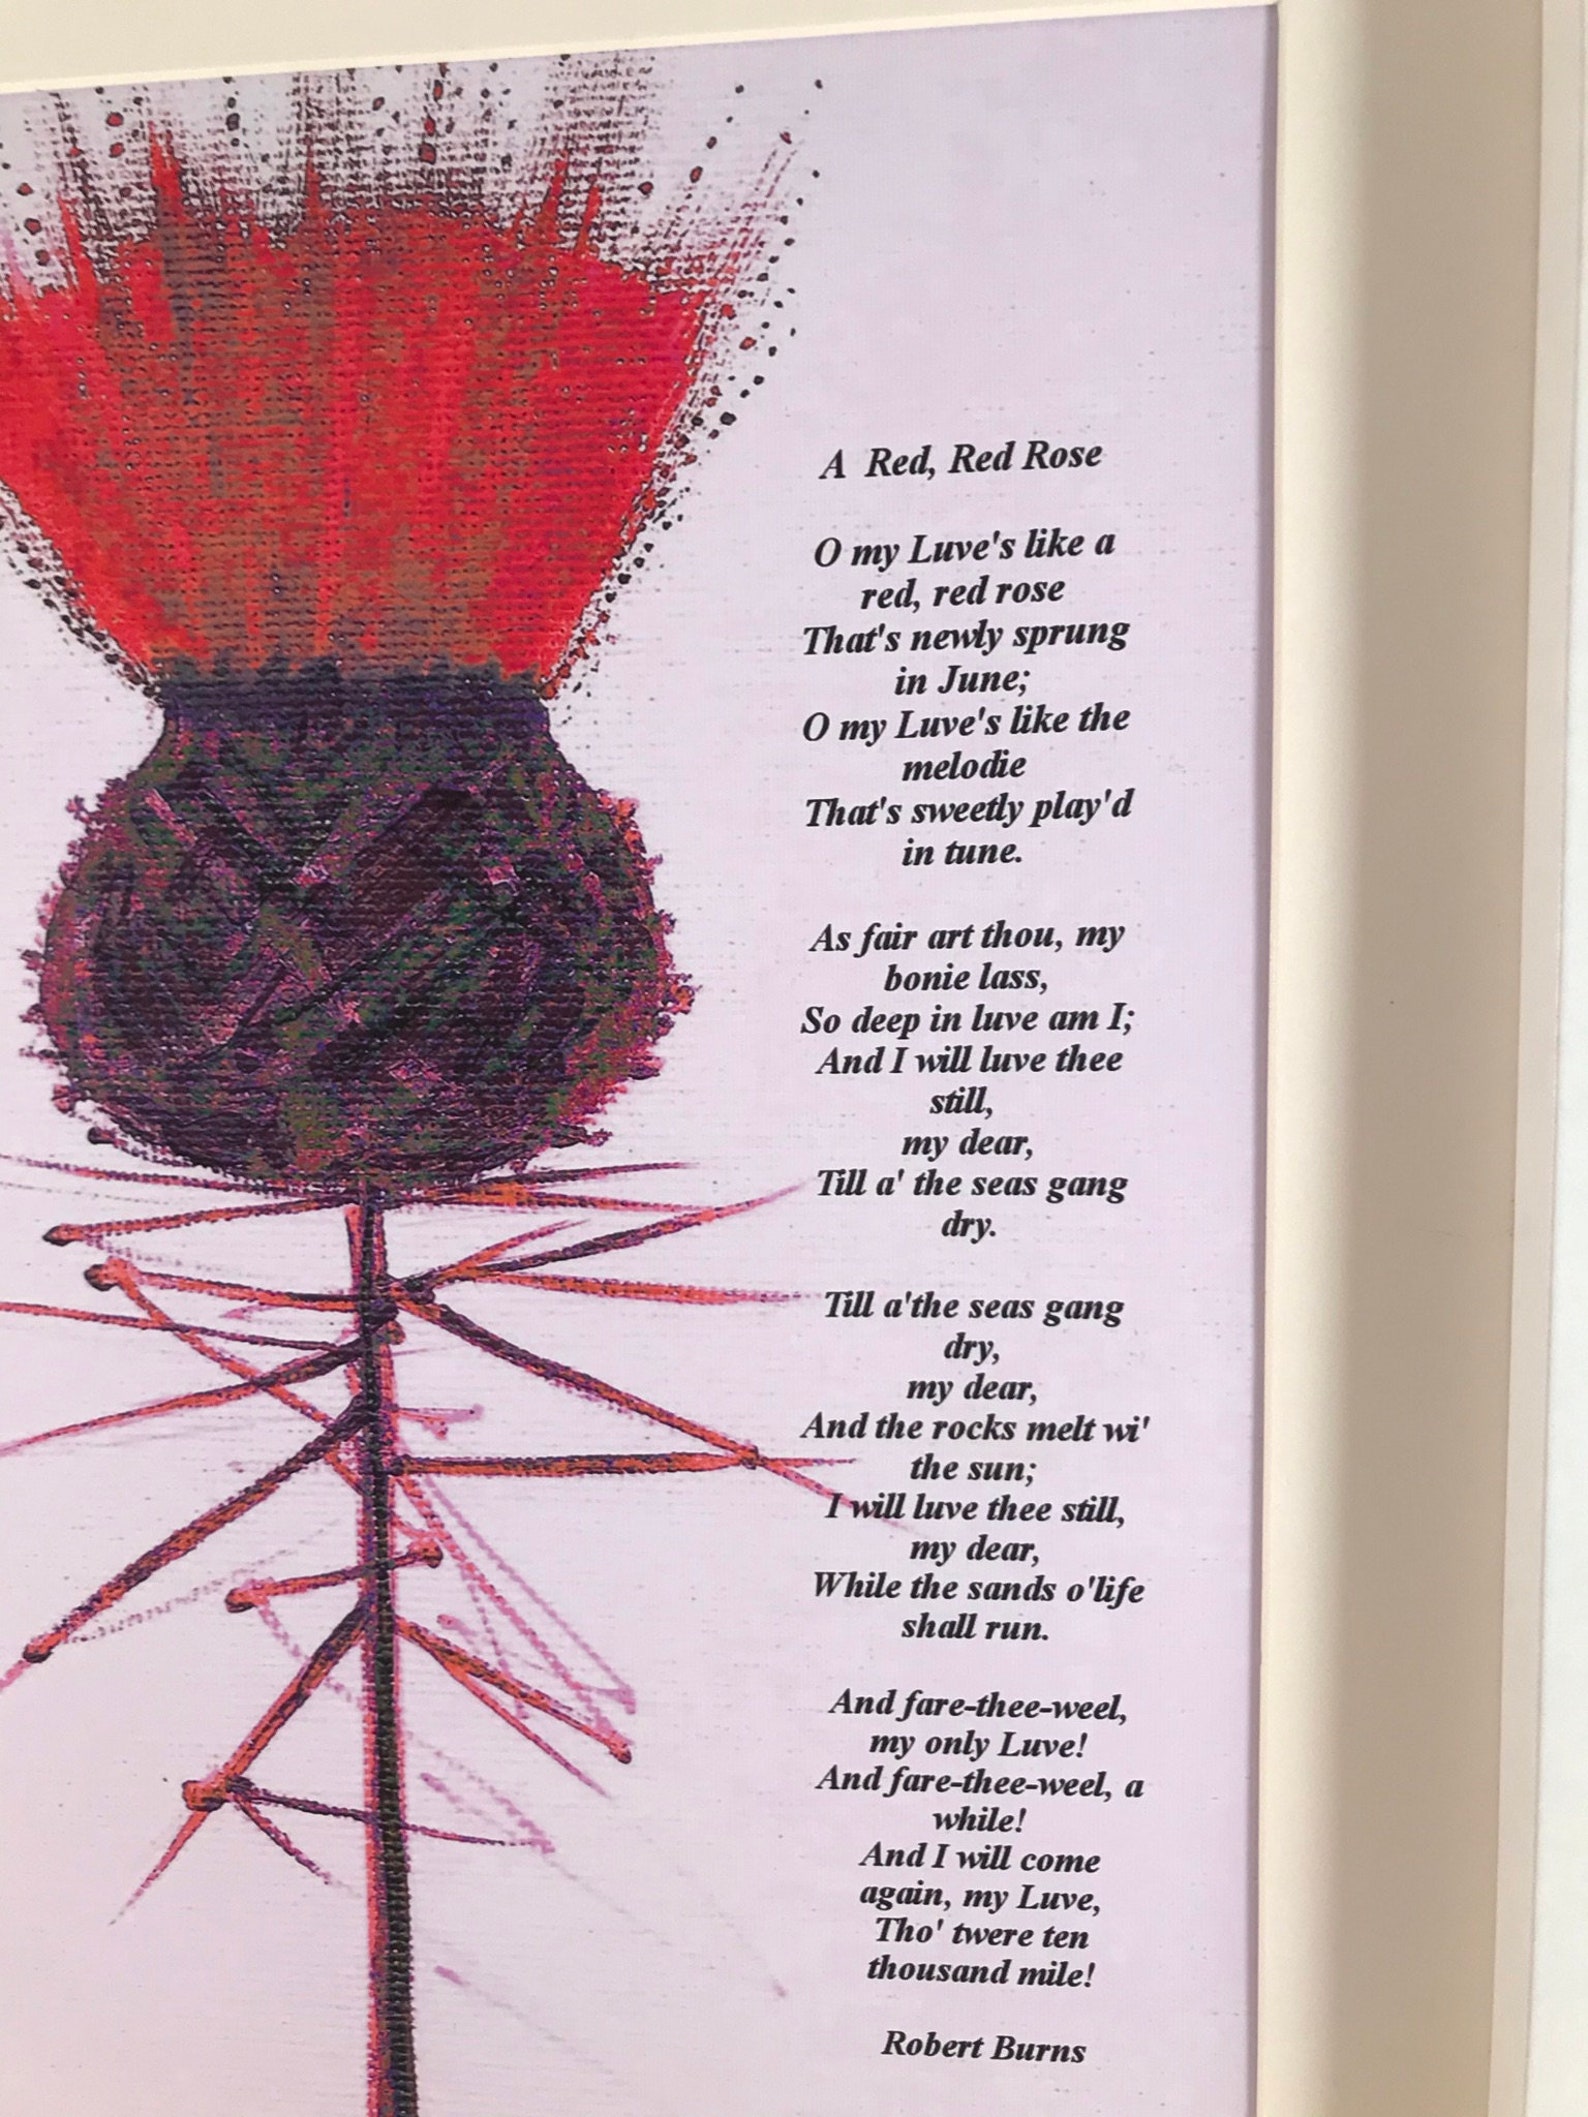 A Red, Red Rose
O my Luve's like a
red, red rose
That's newly sprung
in June;
O my Luve's like the
melodie
That's sweetly play'd
in tune.
As fair art thou, my
bonie lass,
So deep in luve am I;
And I will luve thee
still,
my dear,
Till a' the seas gang
dry.
Till a'the seas gang
dry,
my dear,
And the rocks melt wi'
the sun;
I will luve thee still,
my dear,
While the sands o'life
shall run.
And fare-thee-weel,
my only Luve!
And fare-thee-weel, a
while!
And I will come
again, my Luve,
Tho' twere ten
thousand mile!
Robert Burns